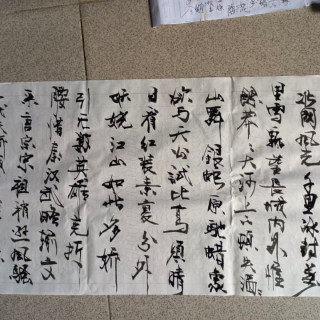 北國風光千里冰封萬
里雪飘望長城内外惟
餘莽莽大河上下頓失滔
山舞銀蛇原馳蜡象
欲与天公試比高須晴
日看红装素裹分外
妖娆江山如此多娇
引无數英雄竞折
腰惜秦汉武略输文
采唐宗宋祖稍逊風騷